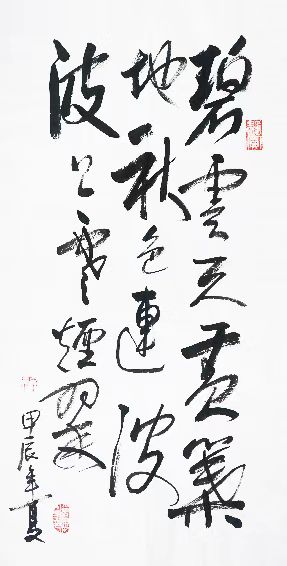 碧雲天黄葉
地秋色連波
波上寒煙翠
甲辰年夏